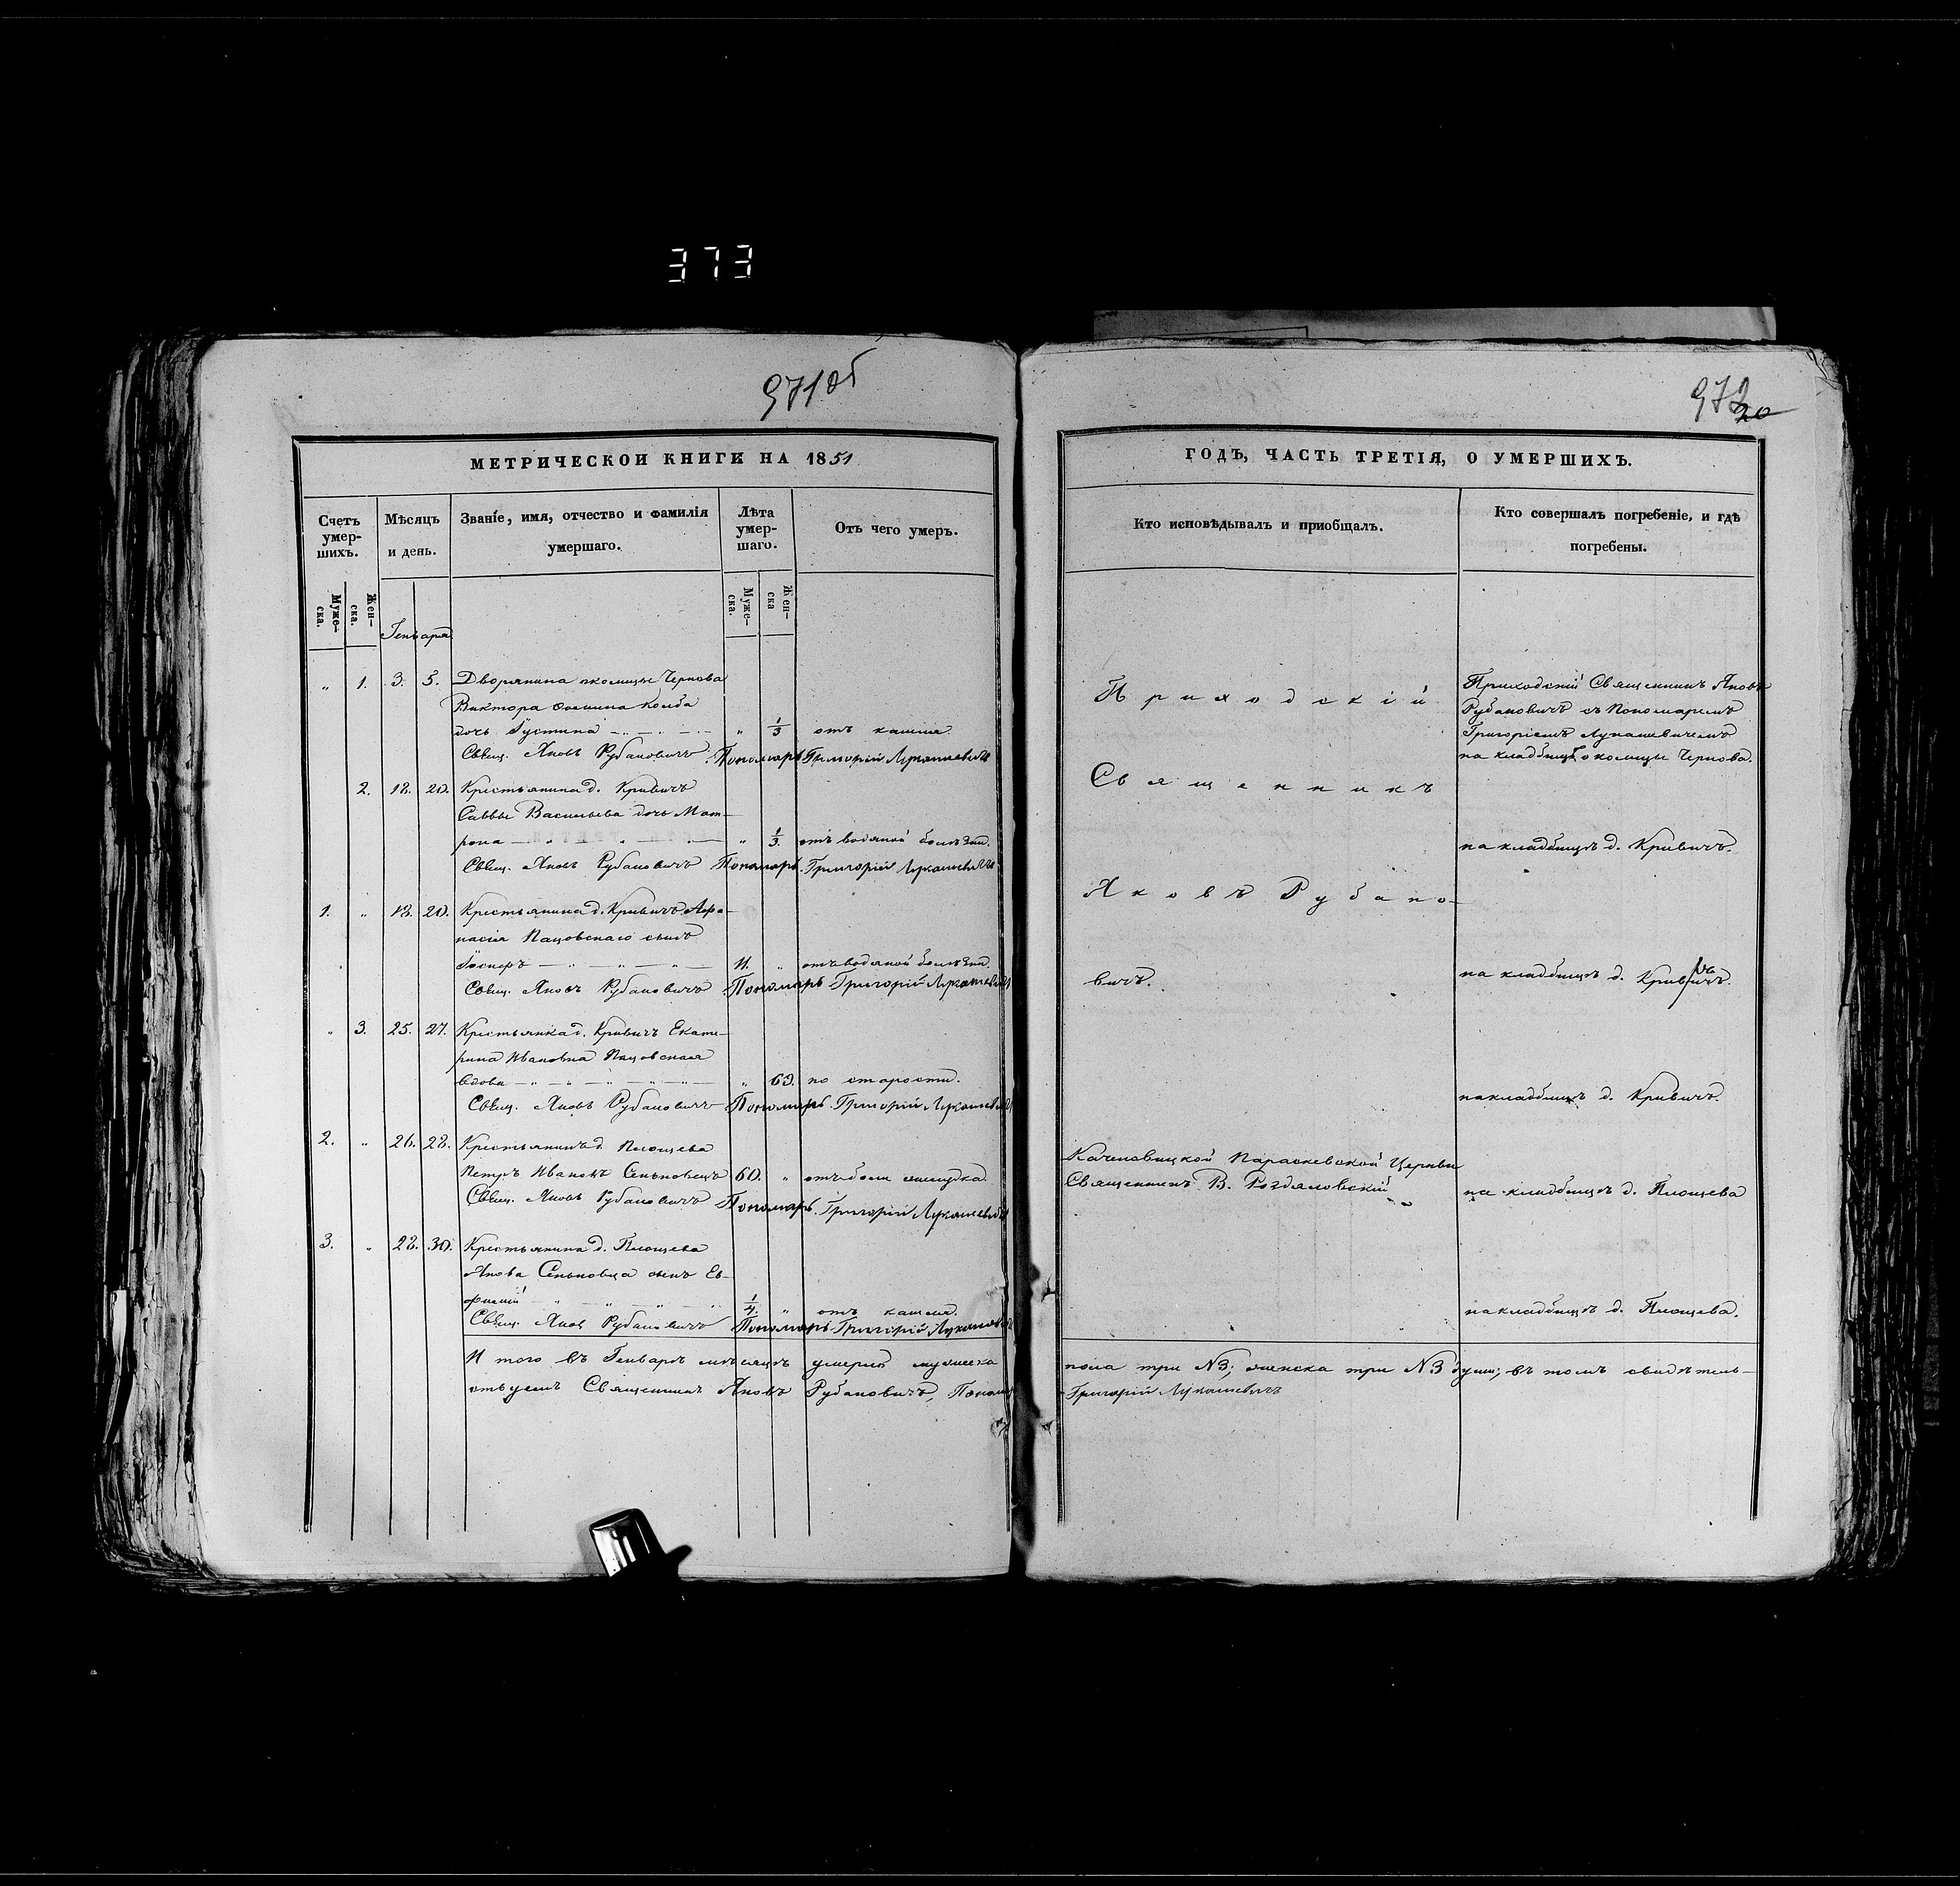 373
971об
972
20
МЕТРИЧЕСКОЙ КНИГИ НА 1851
Счетъ умер-шихъ.
Мѣсяцъ и день.
Званіе, имя, отчество и фамилія умершаго.
Лѣта умер-шаго.
Отъ чего умеръ.
Муже-ска.
Жен-ска.
Муже-ска.
Жен-ска
Генваря
„ 1. 3. 5. Дворянина околицы Чернова
Виктора Колба
дочь Іустина „ 1/3 отъ кашля
Свящ. Яковъ Рубановичъ. Пономарь Григорій Лукашевичъ
2. 18. 20. Крестьянина д. Кривичъ
Саввы Васильева дочь Мат-
рона „ 1/3. отъ водяной болѣзни.
Свящ. Яковъ Рубановичъ Пономарь Григорій Лукашевичъ
1. „ 18. 20. Крестьянина д. Кривичъ Афа-
насія Пацовскаго сынъ
Іосифъ 11. „ отъ водяной болѣзни.
Свящ. Яковъ Рубановичъ Пономарь Григорій Лукашевичъ
„ 3. 25. 27. Крестьянка д. Кривичъ Екате-
рина Иванова Пацовская
вдова „ 60. по старости.
Свящ. Яковъ Рубановичъ Пономарь Григорій Лукашевичъ
2. „ 26. 28. Крестьянинъ д. Площева
Петръ Ивановъ Сеньковецъ 60. „ отъ боли желудка.
Свящ. Яковъ Рубановичъ Пономарь Григорій Лукашевичъ
3. „ 28. 30. Крестьянина д. Площева
Якова Сеньковца сынъ Ев-
фимій 1/4. „ отъ кашля.
Свящ. Яковъ Рубановичъ Пономарь Григорій Лукашевичъ
И того въ Генварѣ мѣсяцѣ умерло мужеска
Священникъ Яковъ Рубановичъ, Пономарь
ГОДѢ, ЧАСТЬ ТРЕТІЯ, О УМЕРШИХЪ.
Кто исповѣдывалъ и приобщалъ.
Кто совершалъ погребеніе, и гдѣ погребены.
Приходскій
Священникъ
Яковъ Рубано-
вичъ.
Приходскій Священникъ Яковъ
Рубановичъ съ Пономаремъ
Григоріемъ Лукашевичемъ
на кладбищѣ околицы Чернова.
на кладбищѣ д. Кривичъ.
на кладбищѣ д. Кривичъ.
на кладбищѣ д. Кривичъ.
Каченовицкой Параскевской Церкви
Священникъ В. Роздяловскій
на кладбищѣ д. Площева
на кладбищѣ д. Площева.
пола три №3; женска три №3 души; въ томъ свидѣтель-
Григорій Лукашевичъ